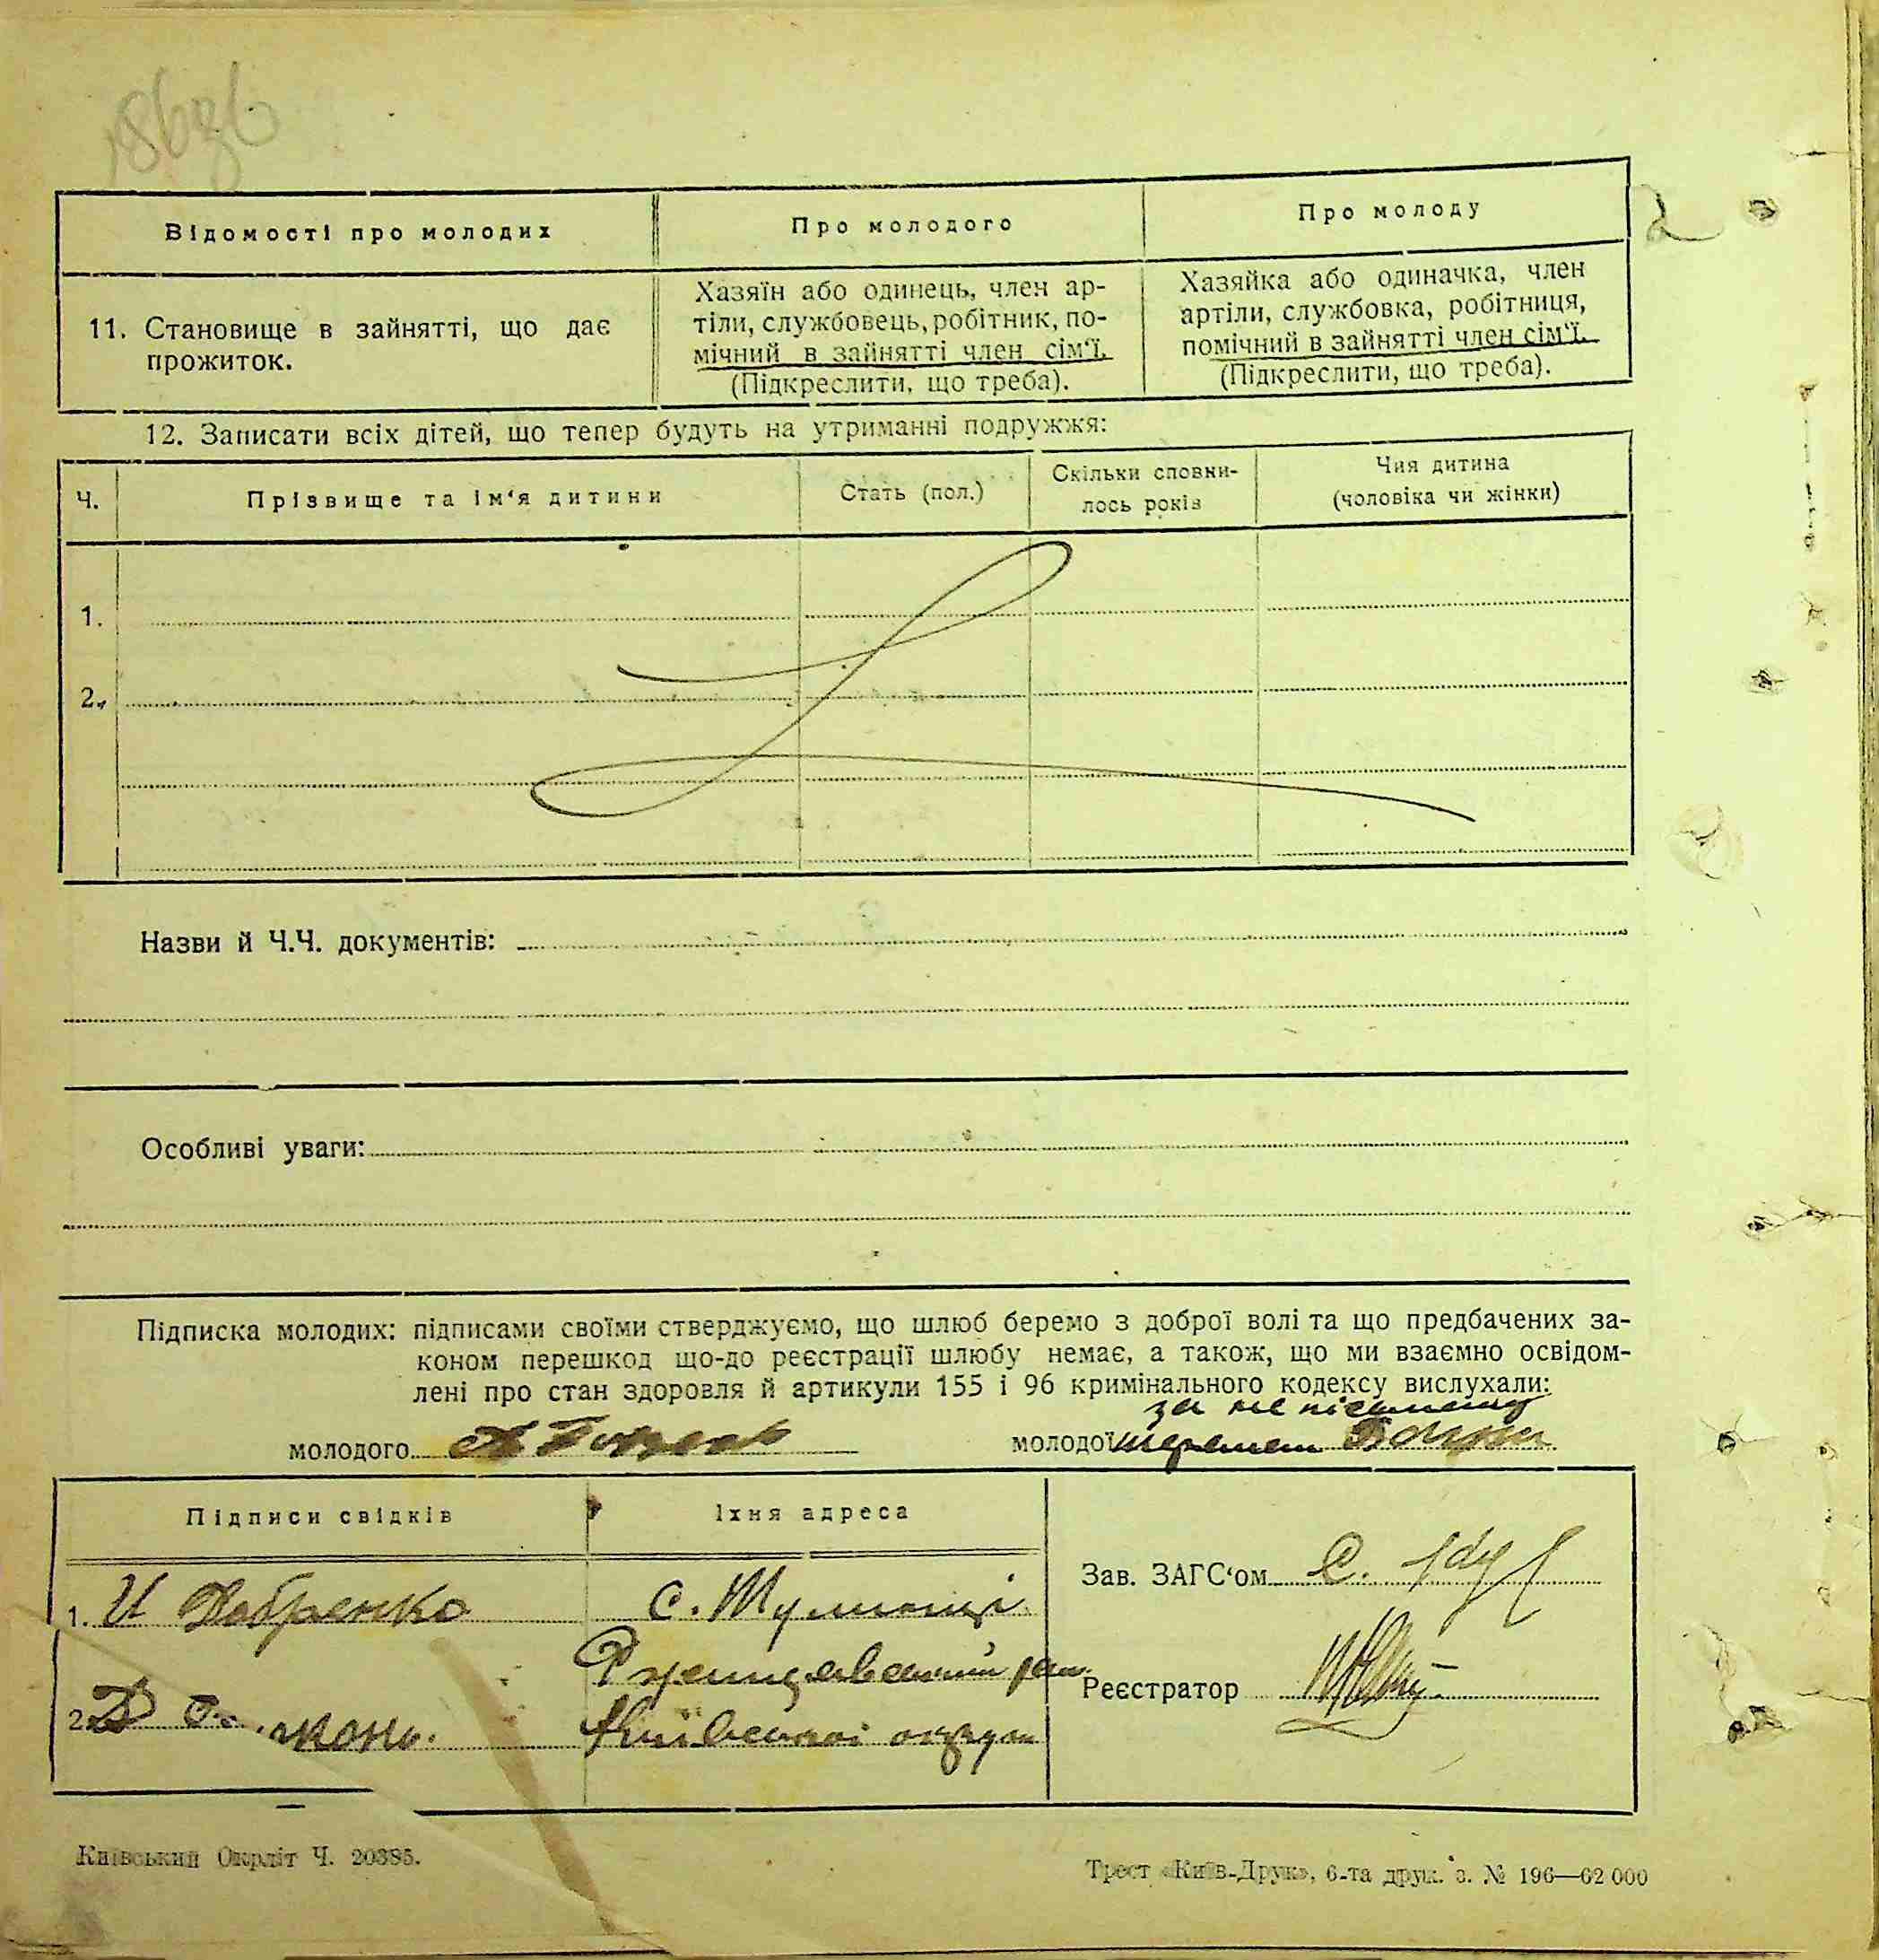 Відомості про молодих
Про молодого
Про молоду
2
11. Становище в зайнятті, що дає
прожиток.
Хазяїн або одинець, член ар-
тіли, службовець, робітник, по-
мічний в зайнятті член сім'ї.
(Підкреслити, що треба).
Хазяйка або одиначка, член
артіли, службовка, робітниця,
помічний в зайнятті член сім'ї.
(Підкреслити, що треба).
12. Записати всіх дітей, що тепер будуть на утриманні подружжя:
Ч.
Прізвище та ім'я дитини
Стать (пол.)
Скільки сповни-
лось років
Чия дитина
(чоловіка чи жінки)
1.
2.
Назви й Ч.Ч. документів:
Особливі уваги:
Підписка молодих: підписами своїми стверджуємо, що шлюб беремо з доброї волі та що предбачених за-
коном перешкод що-до реєстрації шлюбу немає, а також, що ми взаємно освідом-
лені про стан здоровля й артикули 155 і 96 кримінального кодексу вислухали:
за не письменну
молодого
молодої
Підписи свідків
Їхня адреса
1. И Добренко
с.
2. Д
Ржищевський рай.
Київської округи
Зав. ЗАГС'ом
Реєстратор
Київський Окрліт Ч. 20385.
Трест «Київ-Друк», 6-та друк. з. № 196—62 000